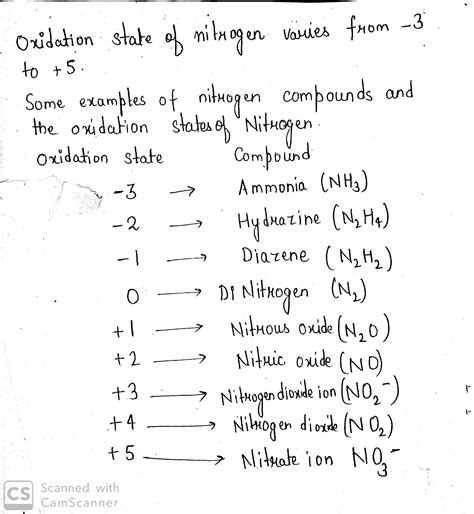 Oxidation state of nitrogen varies from -3
to +5.
Some examples of nitrogen compounds and
the oxidation states of Nitrogen.
Oxidation state Compound
-3 → Ammonia (NH₃)
-2 → Hydrazine (N₂H₄)
-1 → Diazene (N₂H₂)
0 → Di Nitrogen (N₂)
+1 → Nitrous oxide (N₂O)
+2 → Nitric oxide (NO)
+3 → Nitrogen dioxide ion (NO₂⁻)
+4 → Nitrogen dioxide (NO₂)
+5 → Nitrate ion NO₃⁻
CS Scanned with
CamScanner